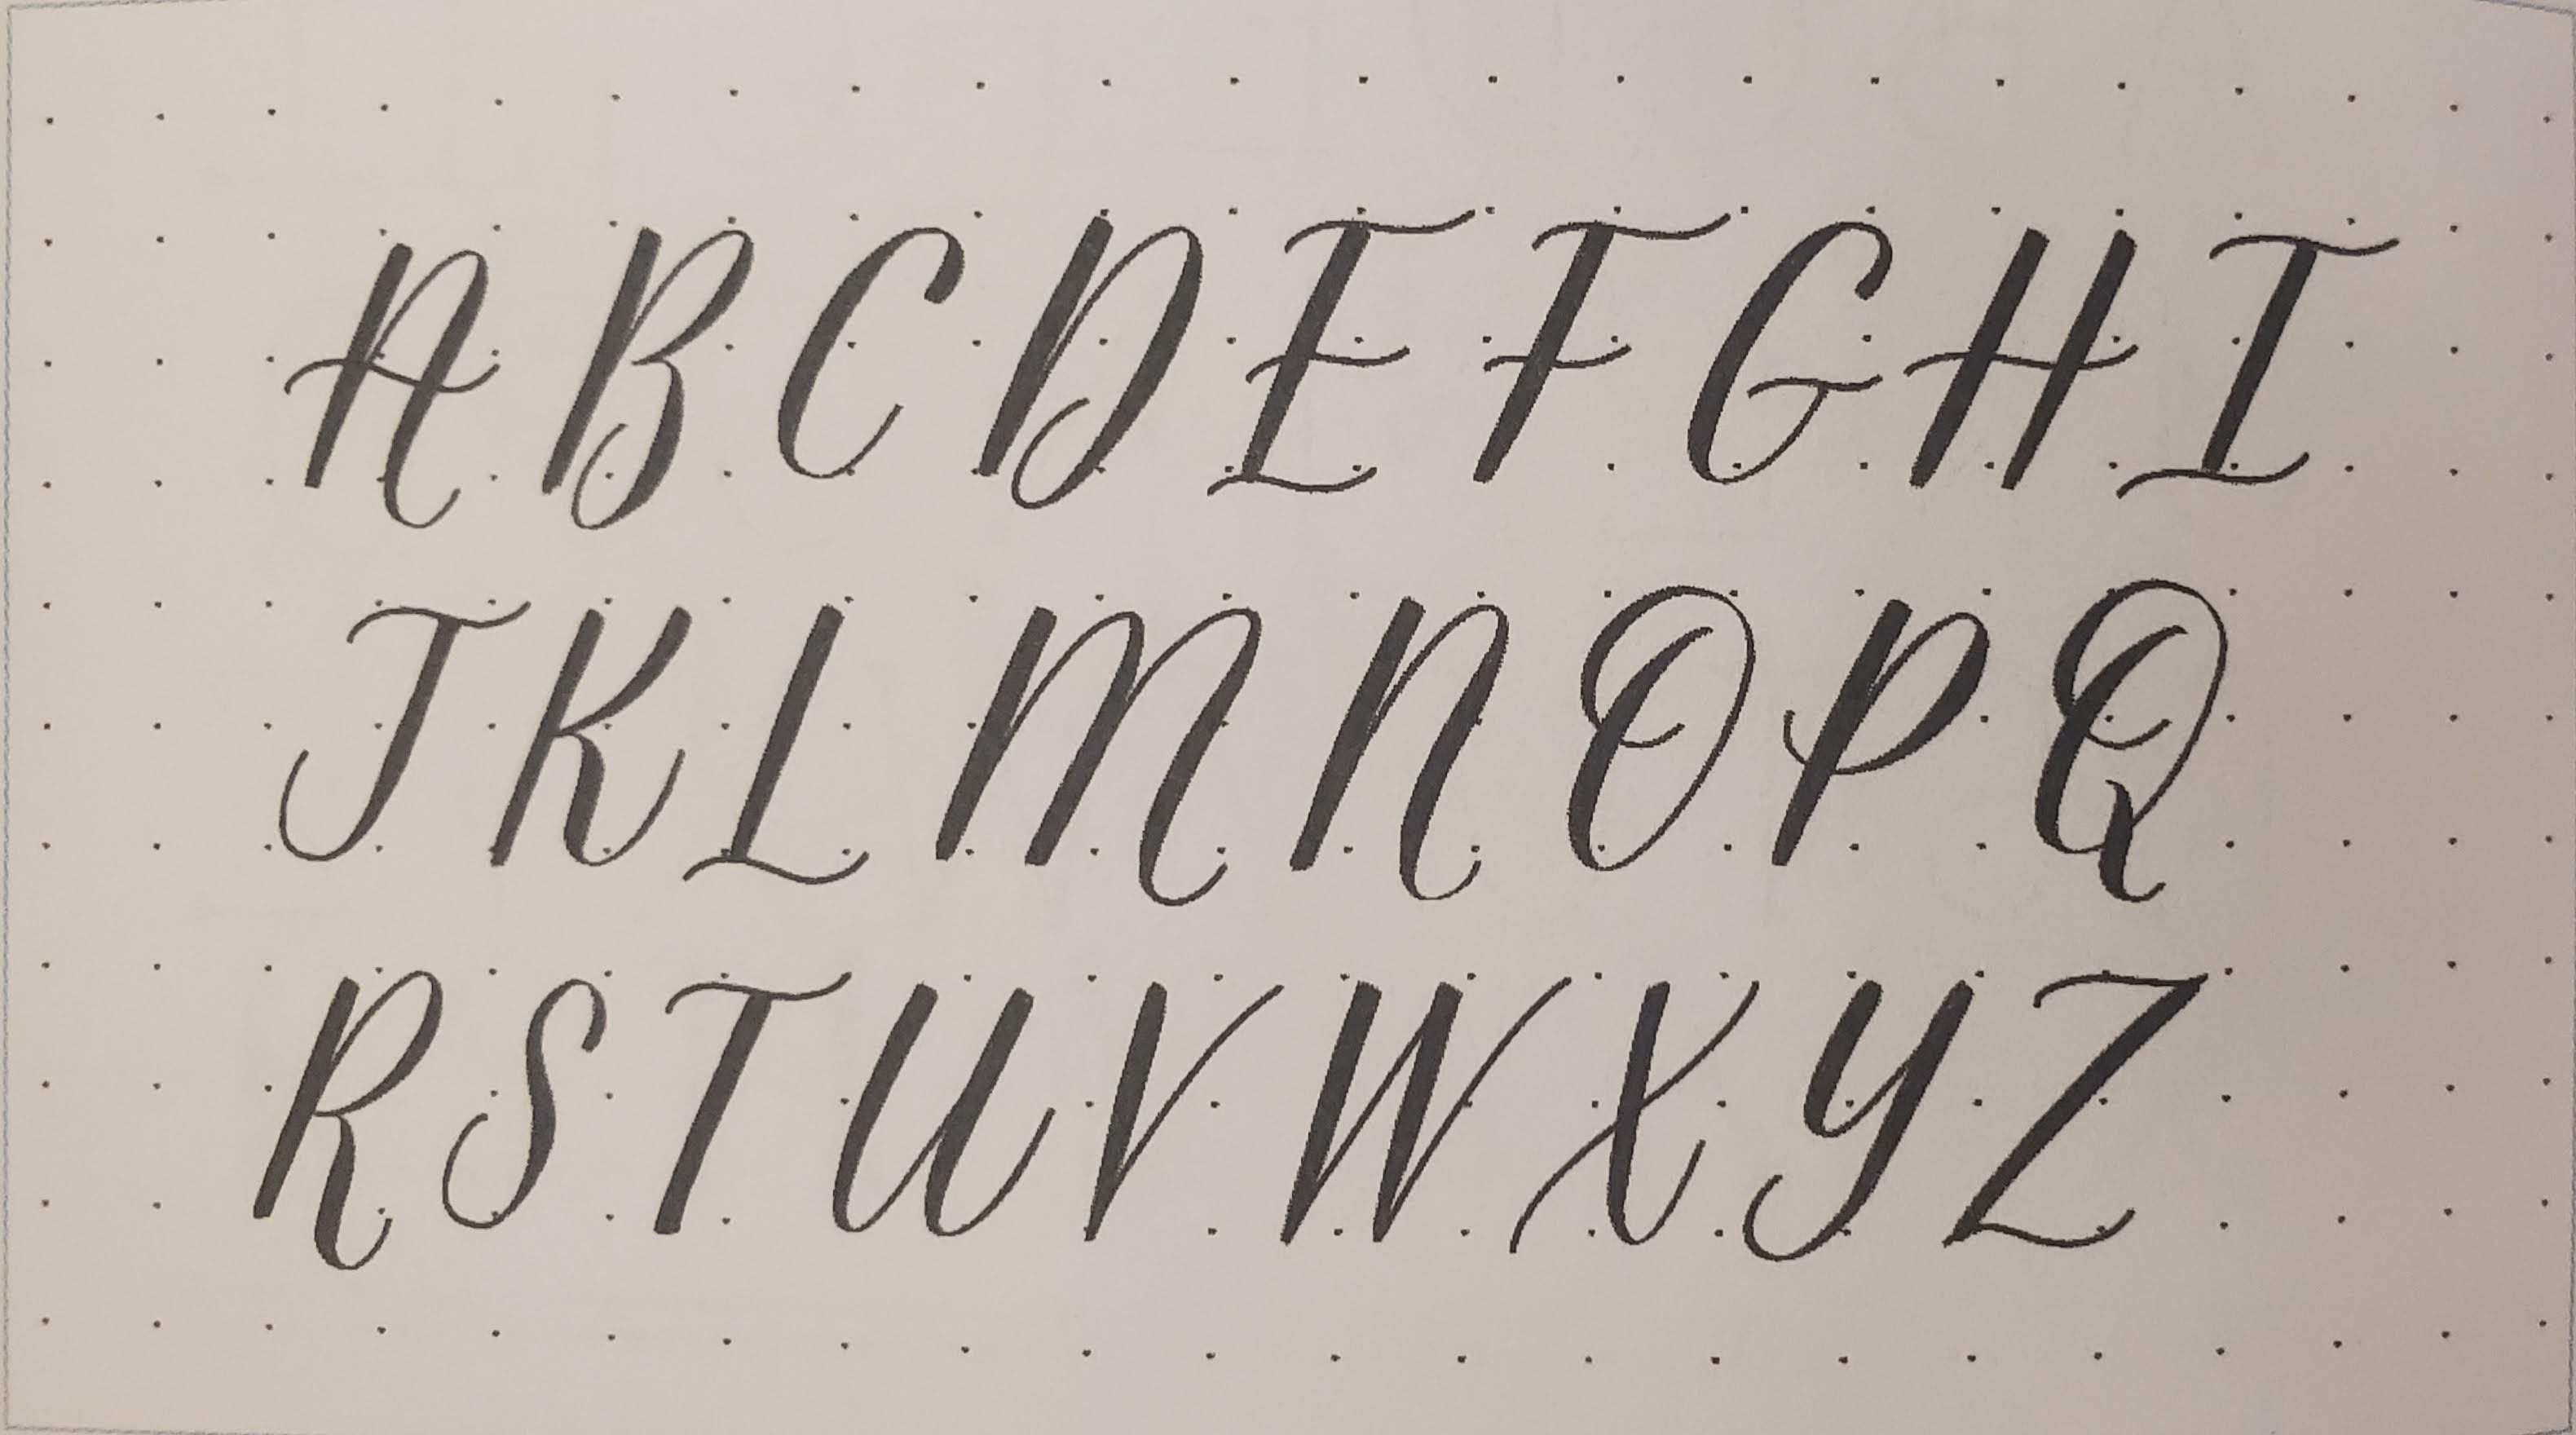 A B C D E F G H I
J K L M N O P Q
R S T U V W X Y Z